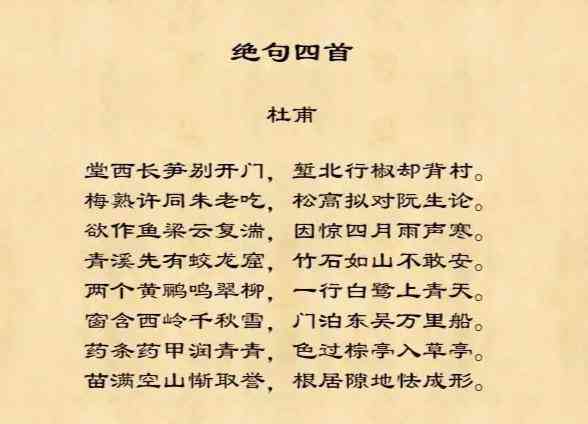 绝句四首
杜甫
堂西长笋别开门，堑北行椒却背村。
梅熟许同朱老吃，松高拟对阮生论。
欲作鱼梁云复湍，因惊四月雨声寒。
青溪先有蛟龙窟，竹石如山不敢安。
两个黄鹂鸣翠柳，一行白鹭上青天。
窗含西岭千秋雪，门泊东吴万里船。
药条药甲润青青，色过棕亭入草亭。
苗满空山惭取誉，根居隙地怯成形。